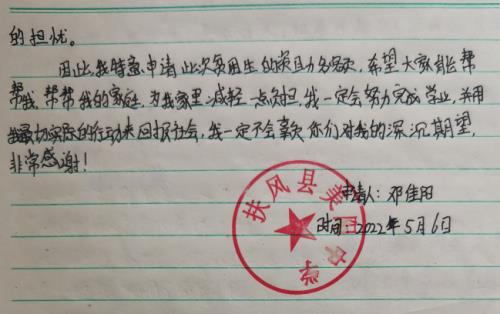 的担忧。
因此，我特意申请此次贫困生的资助名次，希望大家能帮
帮我，帮帮我的家庭，为我家里减轻一点负担，我一定会努力完成学业，并用
最切实际的行动来回报社会，我一定不会辜负你们对我的深沉期望，
非常感谢！
申请人：邓佳阳
时间：2022年5月6日
扶风县美阳中学